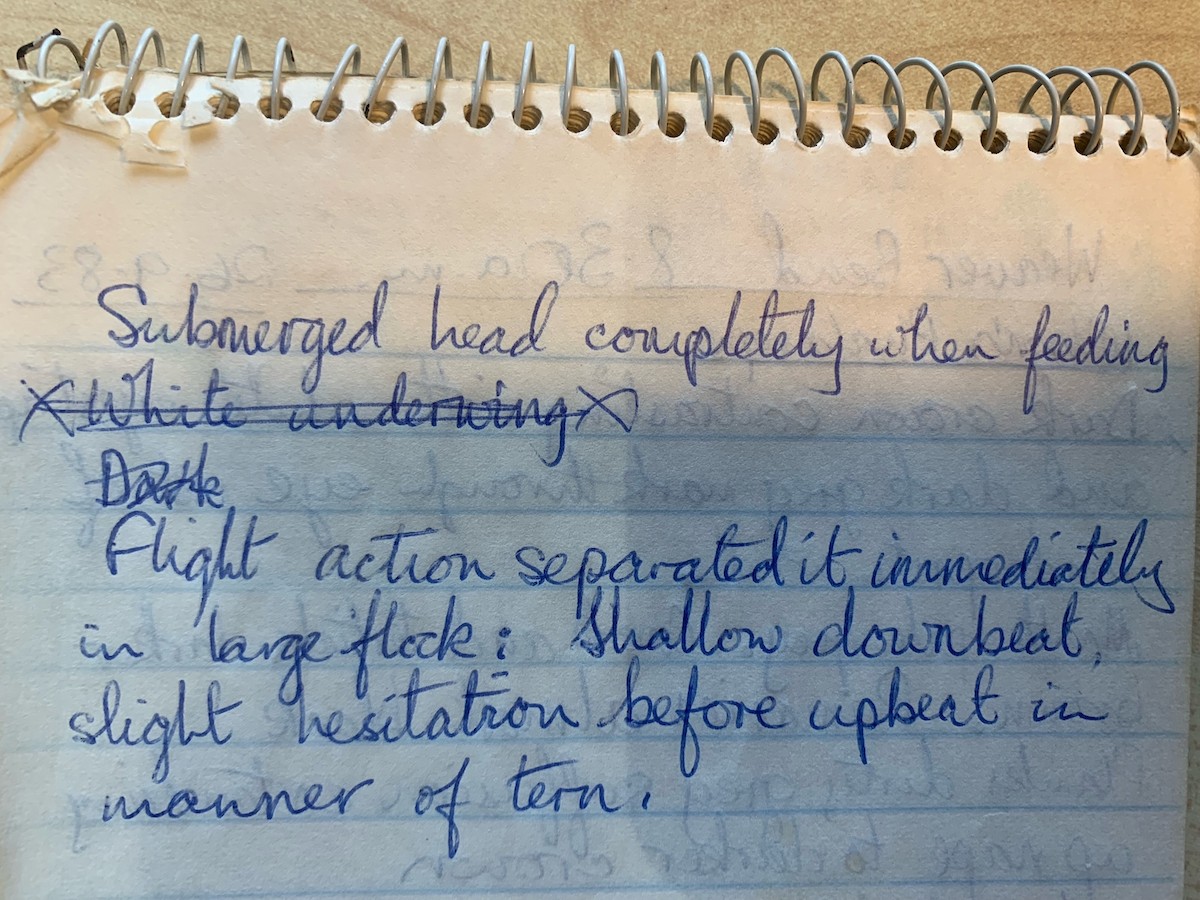 Submerged head completely when feeding
White underwing
Dark
Flight action separated it immediately
in large flock: Shallow downbeat,
slight hesitation before upbeat in
manner of tern.